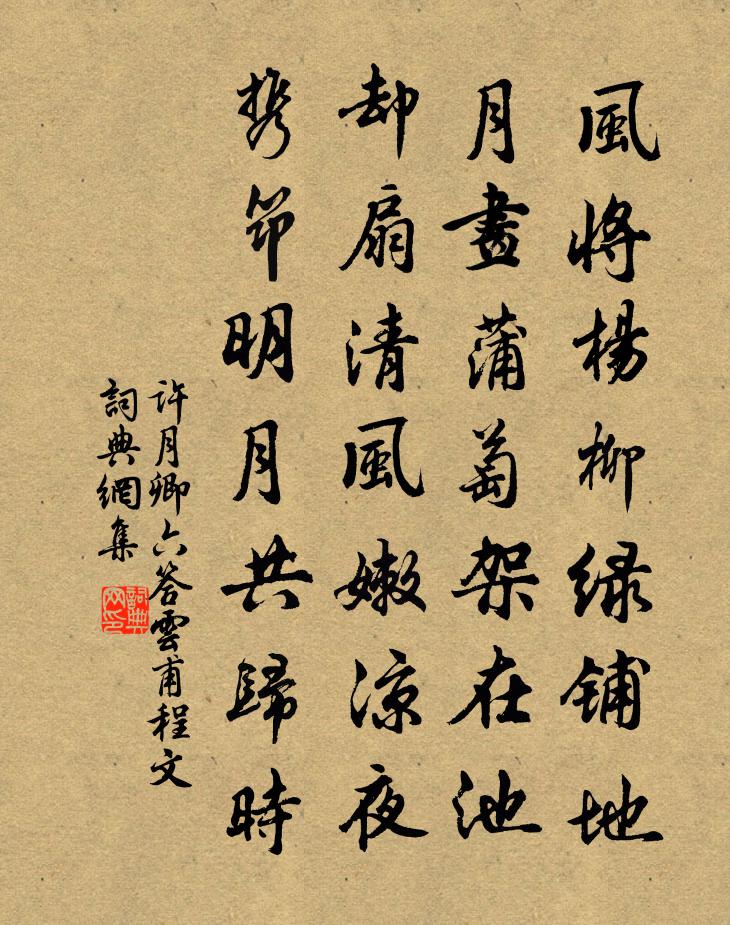 風將楊柳緑鋪地
月畫蒲萄架在池
却扇清風嫩凉夜
携笻明月共歸時
許月卿六答雲甫程文
詞典網集
詞典网印